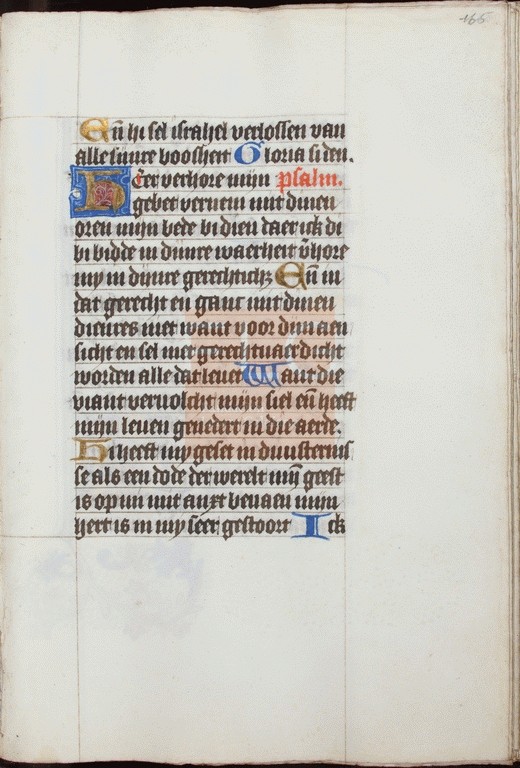 166
Eñ hi sel israhel verlossen van
alle sinre boosheit Gloria si den.
Heer verhore mijn psalm.
gebet vernem mit dinen
oren mijn bede bi dien daer ick di
bi bidde in dinre waerheit v̄hore
my in dijnre gerechticht Eñ in
dat gerecht en ganc mit dinen
dienres niet want voor dijn aen
sicht en sel niet gerechtvaerdicht
worden alle dat levet Want die
viant vervolcht mijn siel eñ heeft
mijn leven genedert in die aerde.
Hi heeft my geset in duusternis
se als een dode der werelt mijn geest
is op mi mit anxt bevaen mijn
hert is in my seer gestoort Ick